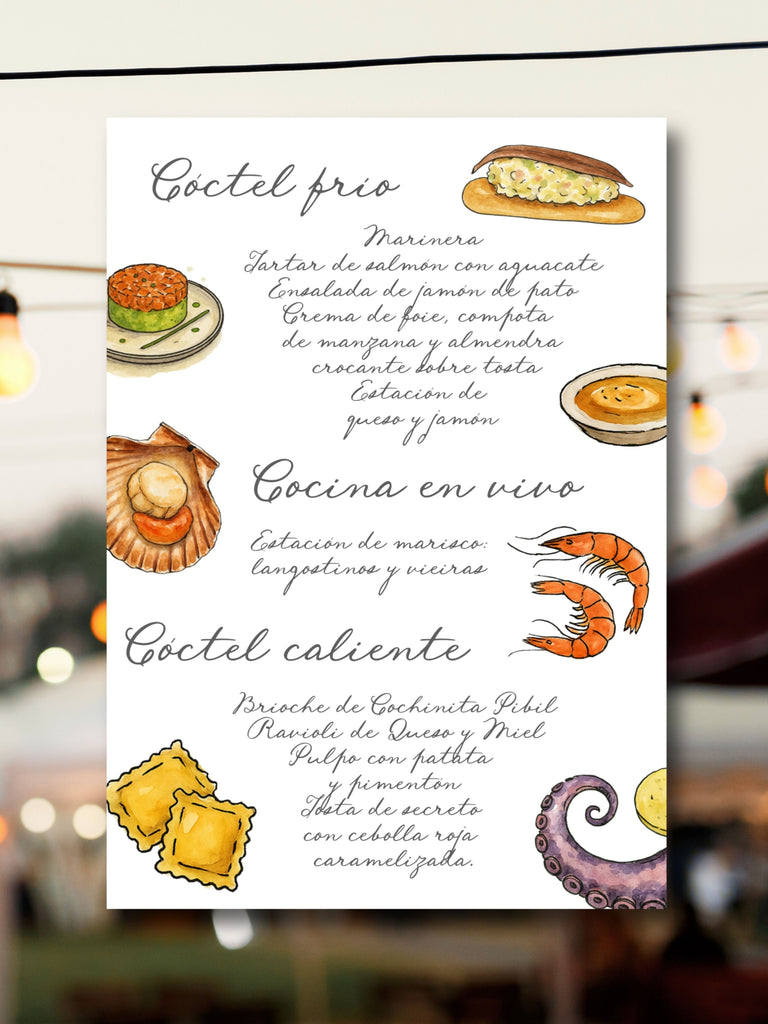 Cóctel frío
Marinera
Tartar de salmón con aguacate
Ensalada de jamón de pato
Crema de foie, compota
de manzana y almendra
crocante sobre tosta
Estación de
queso y jamón
Cocina en vivo
Estación de marisco:
langostinos y vieiras
Cóctel caliente
Brioche de Cochinita Pibil
Ravioli de Queso y Miel
Pulpo con patata
y pimentón
Tosta de secreto
con cebolla roja
caramelizada.